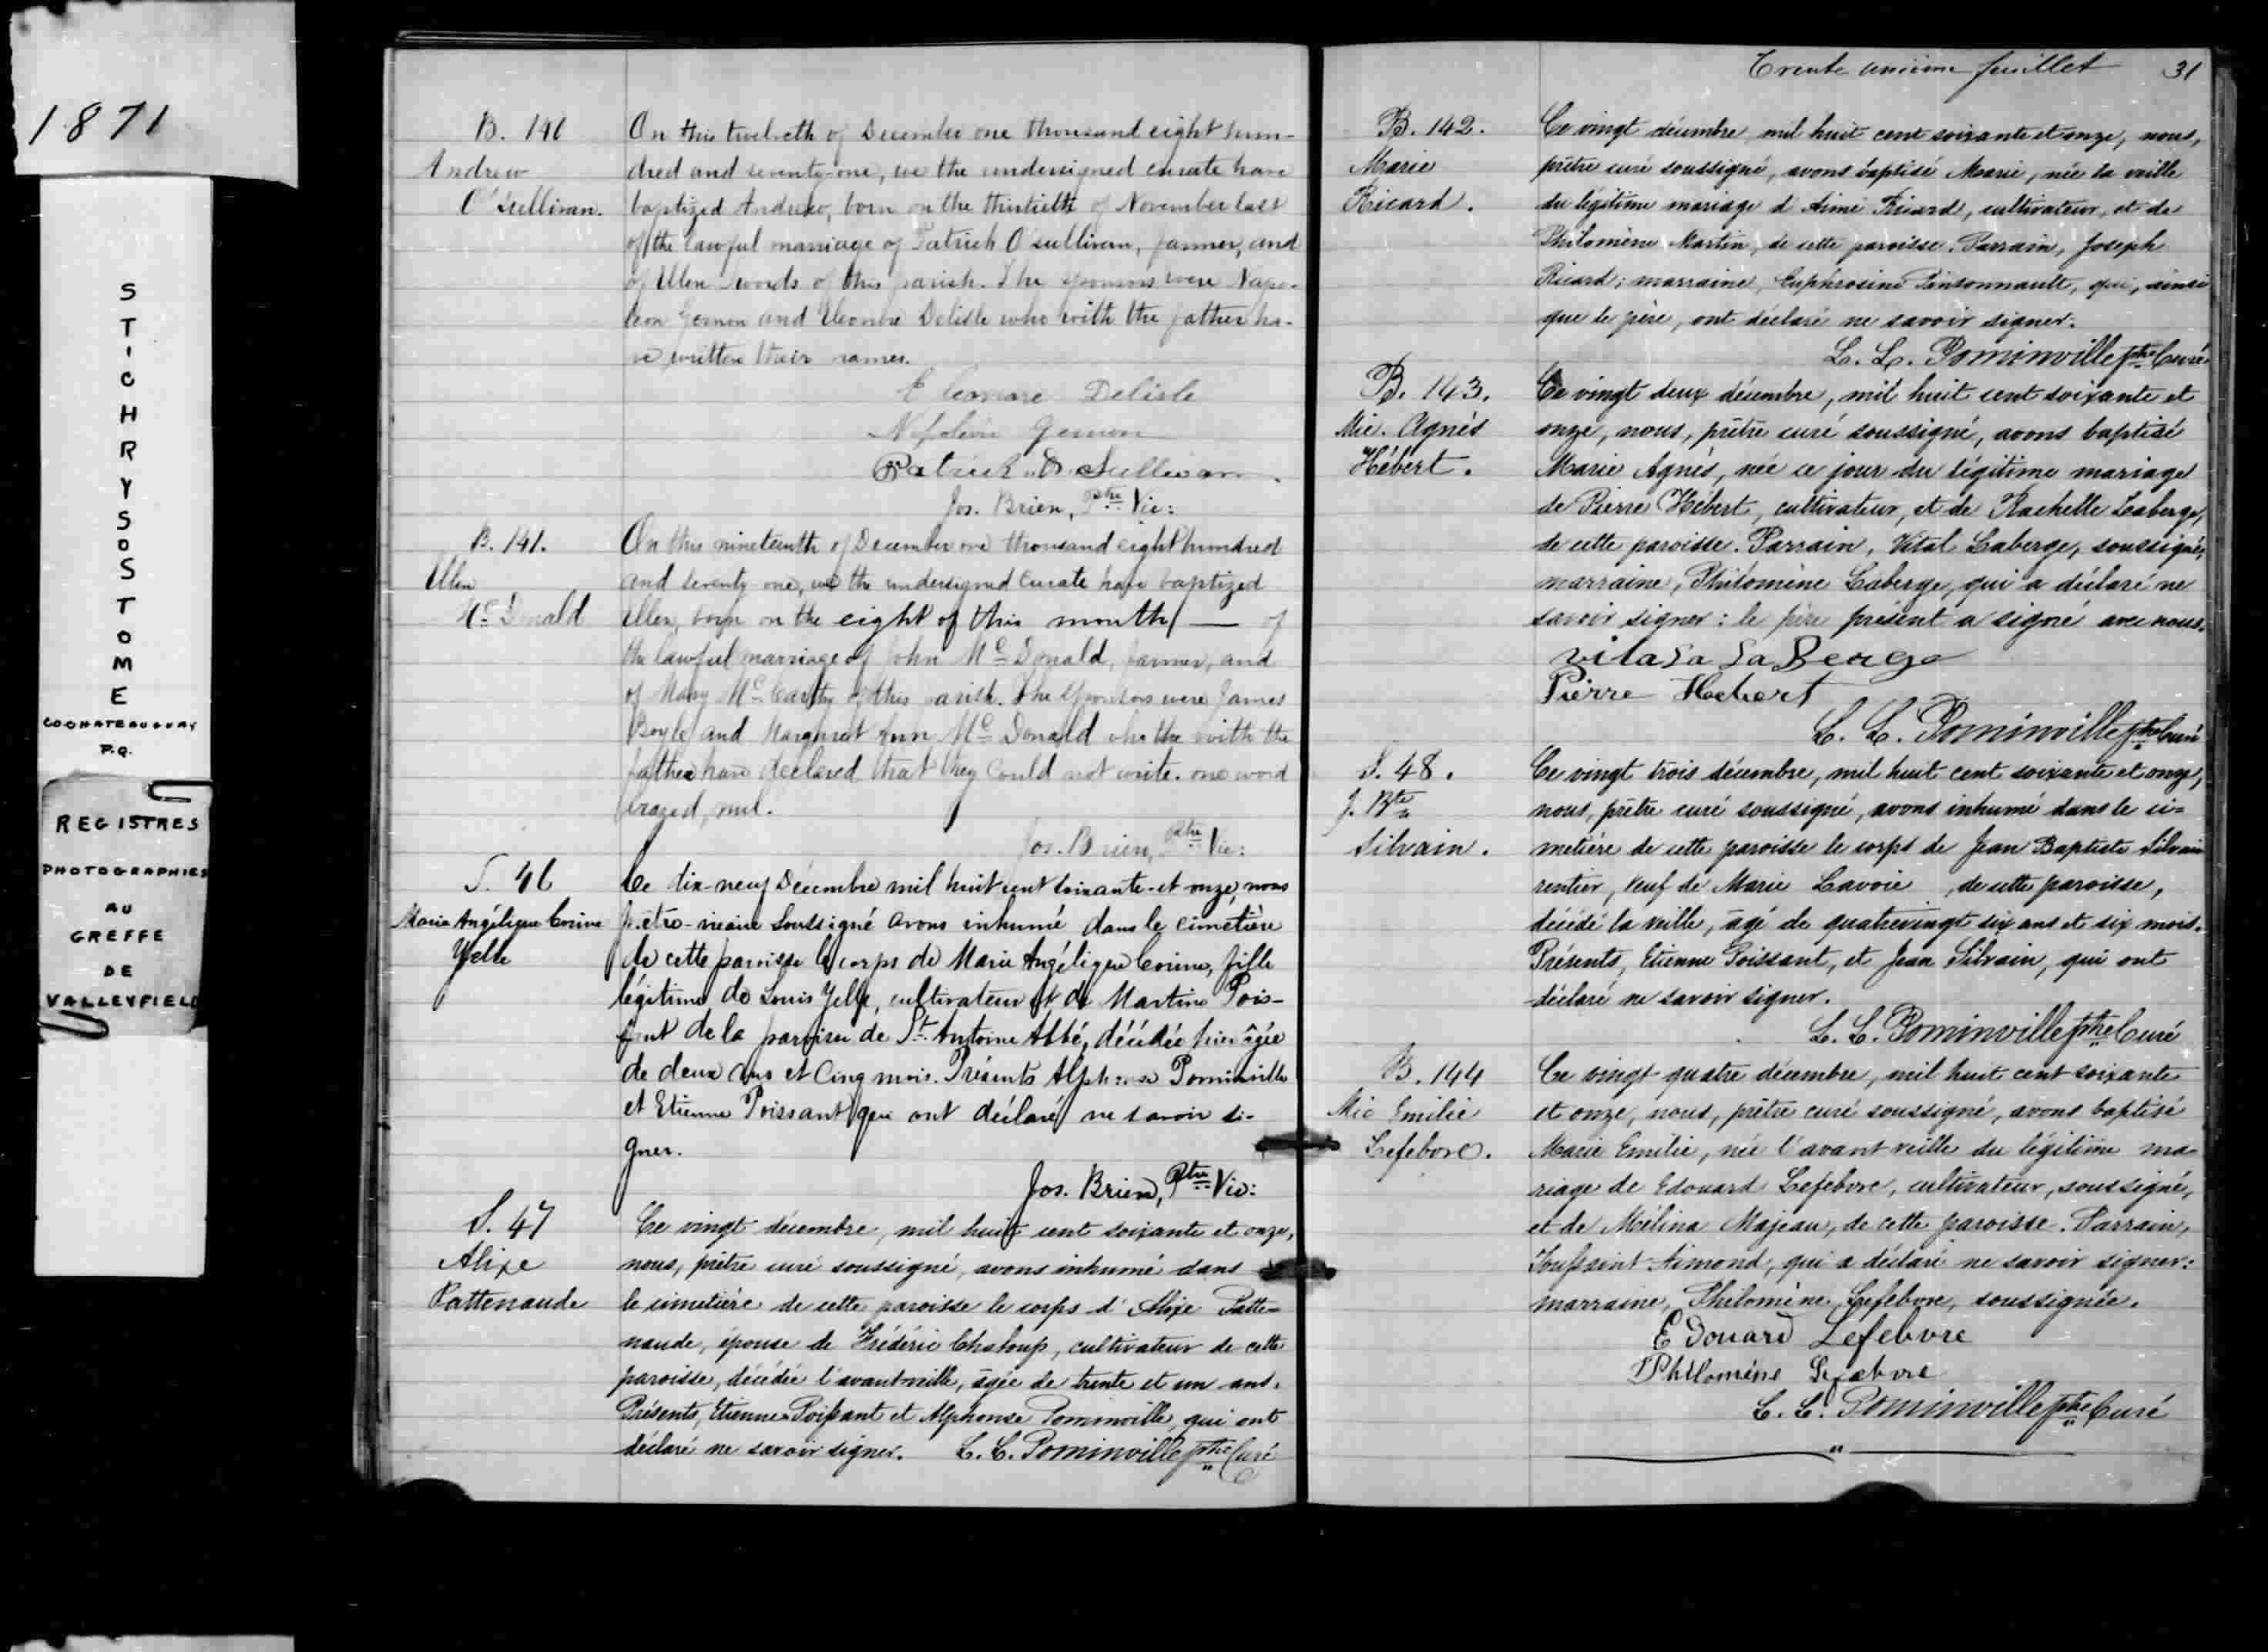 1871
ST CHRYSOSTOME
CO CHATEAUGUAY
P.Q.
REGISTRES
PHOTOGRAPHIES
AU
GREFFE
DE
VALLEYFIELD
B. 140
Andrew
O'Sullivan.
On this twelveth of December one thousand eight hun-
dred and seventy-one, we the undersigned curate have
baptized Andrew, born on the thirtieth of November last
of the lawful marriage of Patrick O'sullivan, farmer, and
of Ellen Swords of this parish. The sponsors were Napo-
leon Gernon and Eleonore Delisle who with the father ha-
ve written their names.
Eleonore Delisle
Napoléon Gernon
Patrick O. Sullivan.
Jos. Brien, Ptre Vic:
B. 141.
Ellen
Mc Donald
On this nineteenth of December one thousand eight hundred
and seventy one, we the undersigned Curate have baptized
Ellen, born on the eight of this month — of
the lawful marriage of John Mc Donald, farmer, and
of Mary Mc Carthy of this parish. The sponsors were James
Boyle and Margaret Ann Mc Donald who the with the
father have declared that they could not write. one word
erazed, nul.
Jos. Brien, Ptre Vic:
S. 46
Marie Angélique Corine
Yelle
Ce dix-neuf Décembre mil huit cent soixante-et onze, nous
prêtre-vicaire soussigné avons inhumé dans le cimetière
de cette paroisse le corps de Marie Angélique Corine, fille
légitime de Louis Yelle, cultivateur et de Martine Pois-
sant de la paroisse de St Antoine Abbé, décédée hier âgée
de deux ans et Cinq mois. Présents Alphonse Pominville
et Etienne Poissant qui ont déclaré ne savoir si-
gner.
Jos. Brien, Ptre Vic:
S. 47
Alixe
Pattenaude
Ce vingt décembre, mil huit cent soixante et onze,
nous, prêtre curé soussigné, avons inhumé dans
le cimetière de cette paroisse le corps d'Alixe Patte=
naude, épouse de Frédéric Chaloup, cultivateur de cette
paroisse, décédée l'avant-veille, âgée de trente et un ans.
Présents, Etienne Poissant et Alphonse Pominville, qui ont
déclaré ne savoir signer. L. L. Pominville ptre Curé
Trente unième feuillet 31
B. 142.
Marie
Ricard.
Ce vingt décembre, mil huit cent soixante et onze, nous,
prêtre curé soussigné, avons baptisé Marie, née la veille
du légitime mariage d'Aimé Ricard, cultivateur, et de
Philomène Martin, de cette paroisse. Parrain, Joseph
Ricard; marraine, Euphrosine Pinsonnault, qui, ainsi
que le père, ont déclaré ne savoir signer.
L. L. Pominville ptre Curé
B. 143.
Mie. Agnès
Hébert.
Ce vingt deux décembre, mil huit cent soixante et
onze, nous, prêtre curé soussigné, avons baptisé
Marie Agnès, née ce jour du légitime mariage
de Pierre Hébert, cultivateur, et de Rachelle Laberge,
de cette paroisse. Parrain, Vital Laberge, soussigné;
marraine, Philomène Laberge, qui a déclaré ne
savoir signer: le père présent a signé avec nous.
vitaLa LaBerge
Pierre Hebert
L. L. Pominville ptre Curé
S. 48.
J. Bte
Silvain.
Ce vingt trois décembre, mil huit cent soixante et onze,
nous, prêtre curé soussigné, avons inhumé dans le ci=
metière de cette paroisse le corps de Jean Baptiste Silvain
rentier, veuf de Marie Lavoie, de cette paroisse,
décédé la veille, âgé de quatrevingt six ans et six mois.
Présents, Etienne Poissant, et Jean Silvain, qui ont
déclaré ne savoir signer.
L. L. Pominville ptre Curé
B. 144
Mie Emilie
Lefebvre.
Ce vingt quatre décembre, mil huit cent soixante
et onze, nous, prêtre curé soussigné, avons baptisé
Marie Emilie, née l'avant veille du légitime ma-
riage de Edouard Lefebvre, cultivateur, soussigné,
et de Mélina Majeau, de cette paroisse. Parrain,
Toussaint Aimond, qui a déclaré ne savoir signer:
marraine, Philomène Lefebvre, soussignée.
Edouard Lefebvre
Philomène Lefebvre
L. L. Pominville ptre Curé